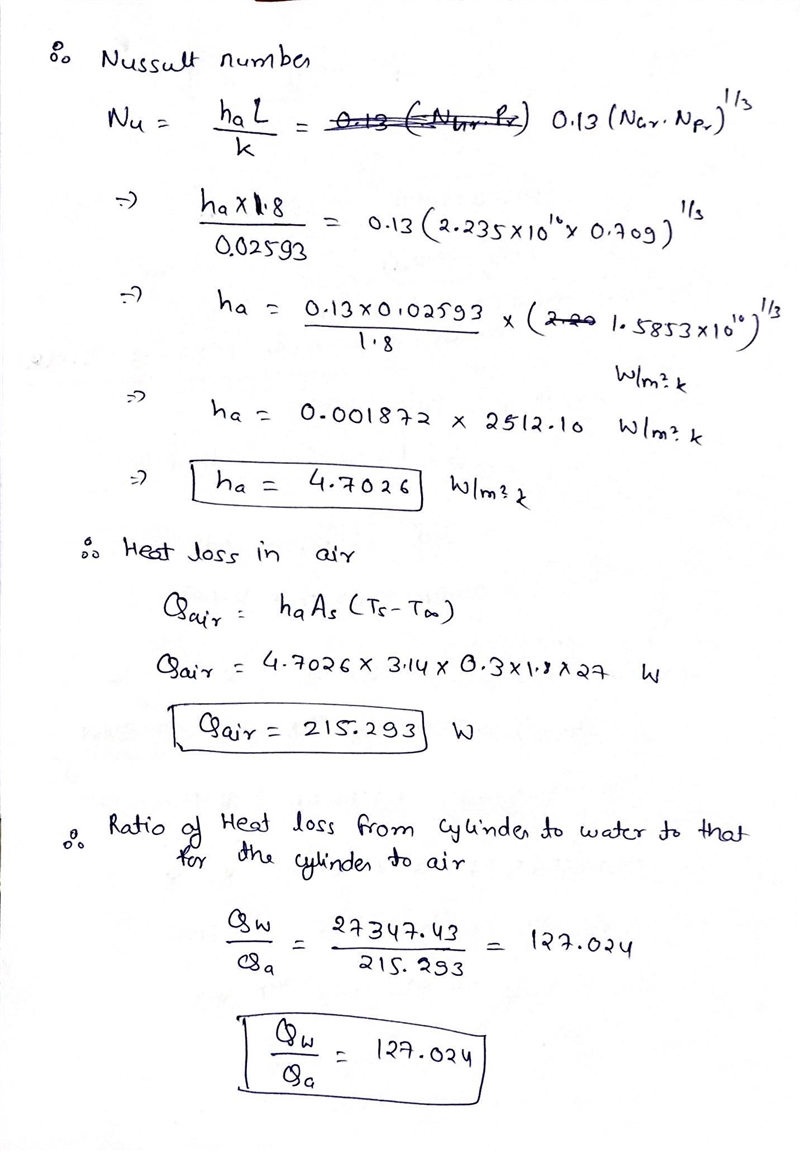 ∴ Nussult number
Nu = haL/k = 0.13 (NGr. NPr)^1/3
⇒ ha×1.8/0.02593 = 0.13 (2.235×10^10 × 0.709)^1/3
⇒ ha = 0.13×0.02593/1.8 × (1.5853×10^10)^1/3
W/m².k
⇒ ha = 0.001872 × 2512.10 W/m².k
⇒ ha = 4.7026 W/m².k
∴ Heat loss in air
Qair = haAs (Ts-T∞)
Qair = 4.7026 × 3.14 × 0.3×1.8×27 W
Qair = 215.293 W
∴ Ratio of Heat loss from cylinder to water to that
for the cylinder to air
Qw/Qa = 27347.43/215.293 = 127.024
Qw/Qa = 127.024